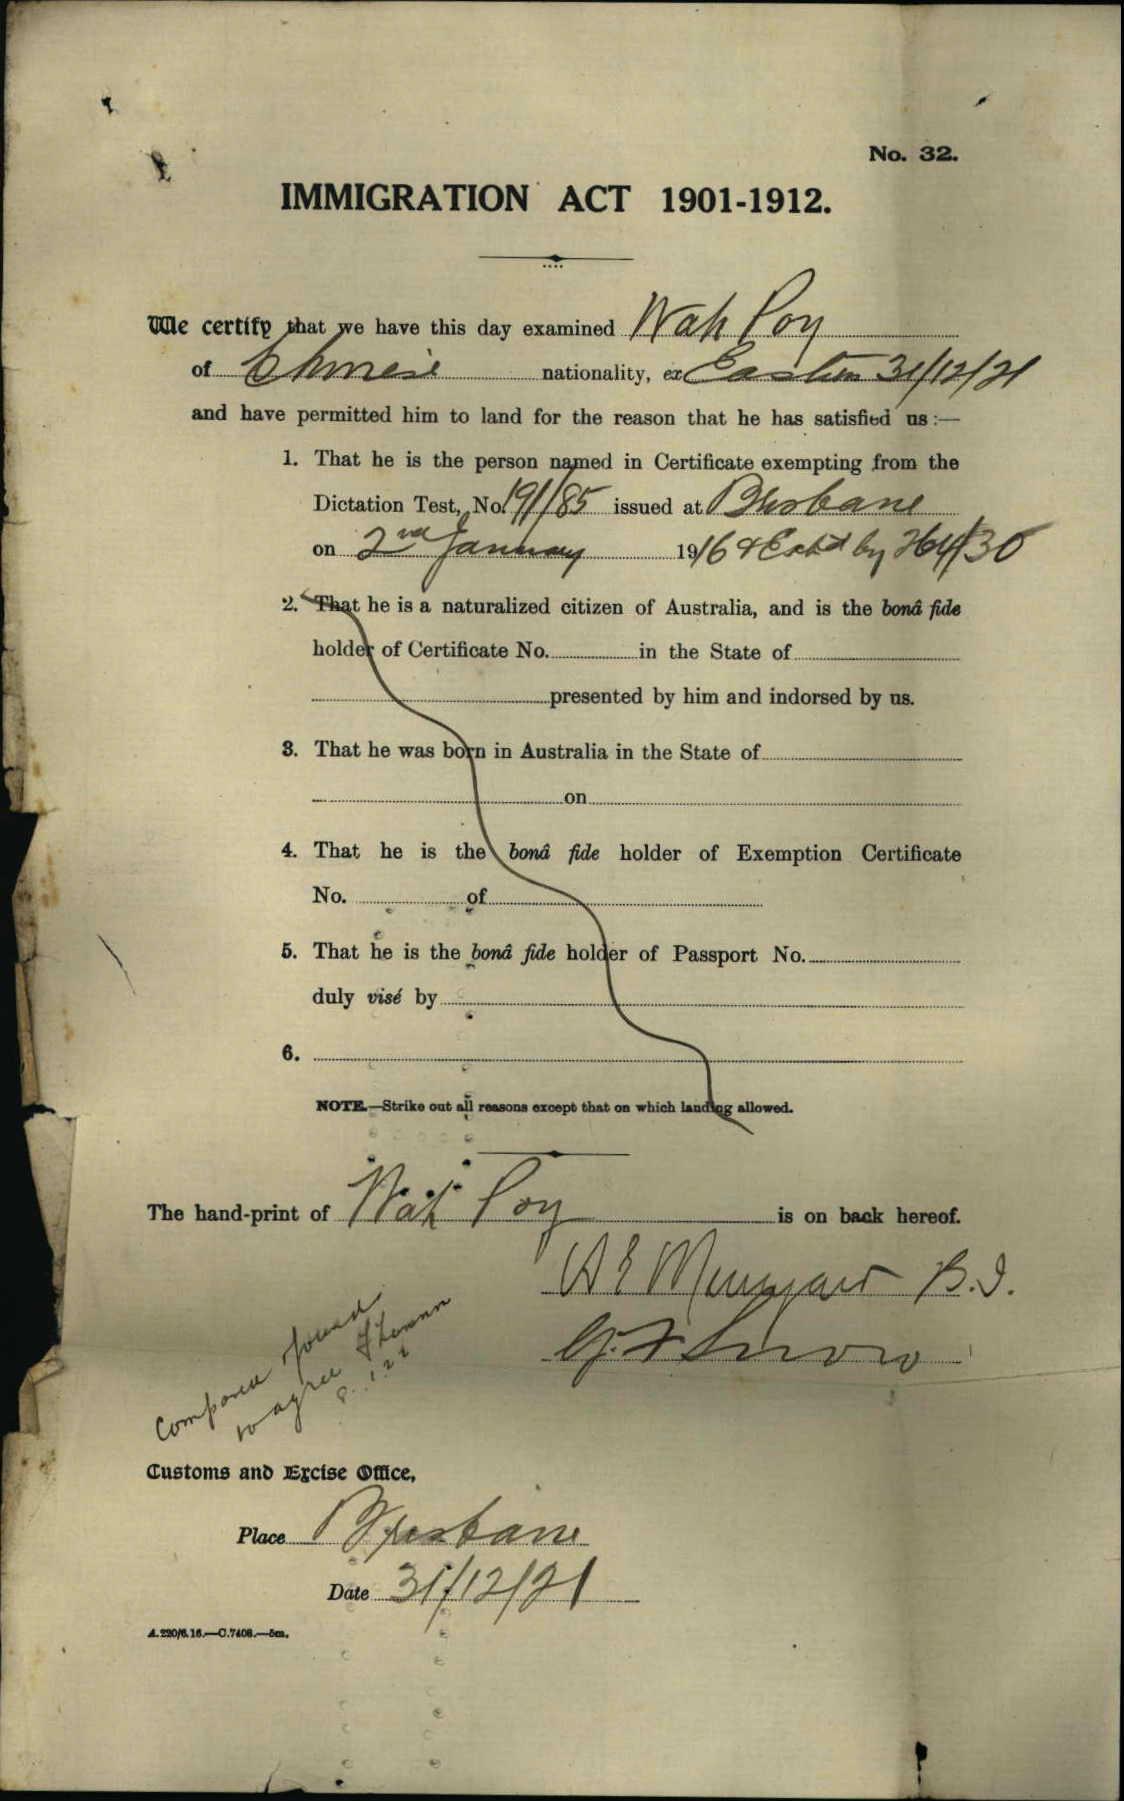 No. 32.
IMMIGRATION ACT 1901-1912.
We certify that we have this day examined Wah Poy
of Chinese nationality, ex Eastern 31/12/21
and have permitted him to land for the reason that he has satisfied us :—
1. That he is the person named in Certificate exempting from the
Dictation Test, No. 191/85 issued at Brisbane
on 2nd January 1916 & Extd by 264/30
2. That he is a naturalized citizen of Australia, and is the bonâ fide
holder of Certificate No. in the State of
presented by him and indorsed by us.
3. That he was born in Australia in the State of
on
4. That he is the bonâ fide holder of Exemption Certificate
No. of
5. That he is the bonâ fide holder of Passport No.
duly visé by
6.
NOTE.—Strike out all reasons except that on which landing allowed.
The hand-print of Wah Poy is on back hereof.
B.I.
G. F. Snow
Compared found
to agree
Customs and Excise Office,
Place Brisbane
Date 31/12/21
A.220/6.16.—C.7408.—5m.